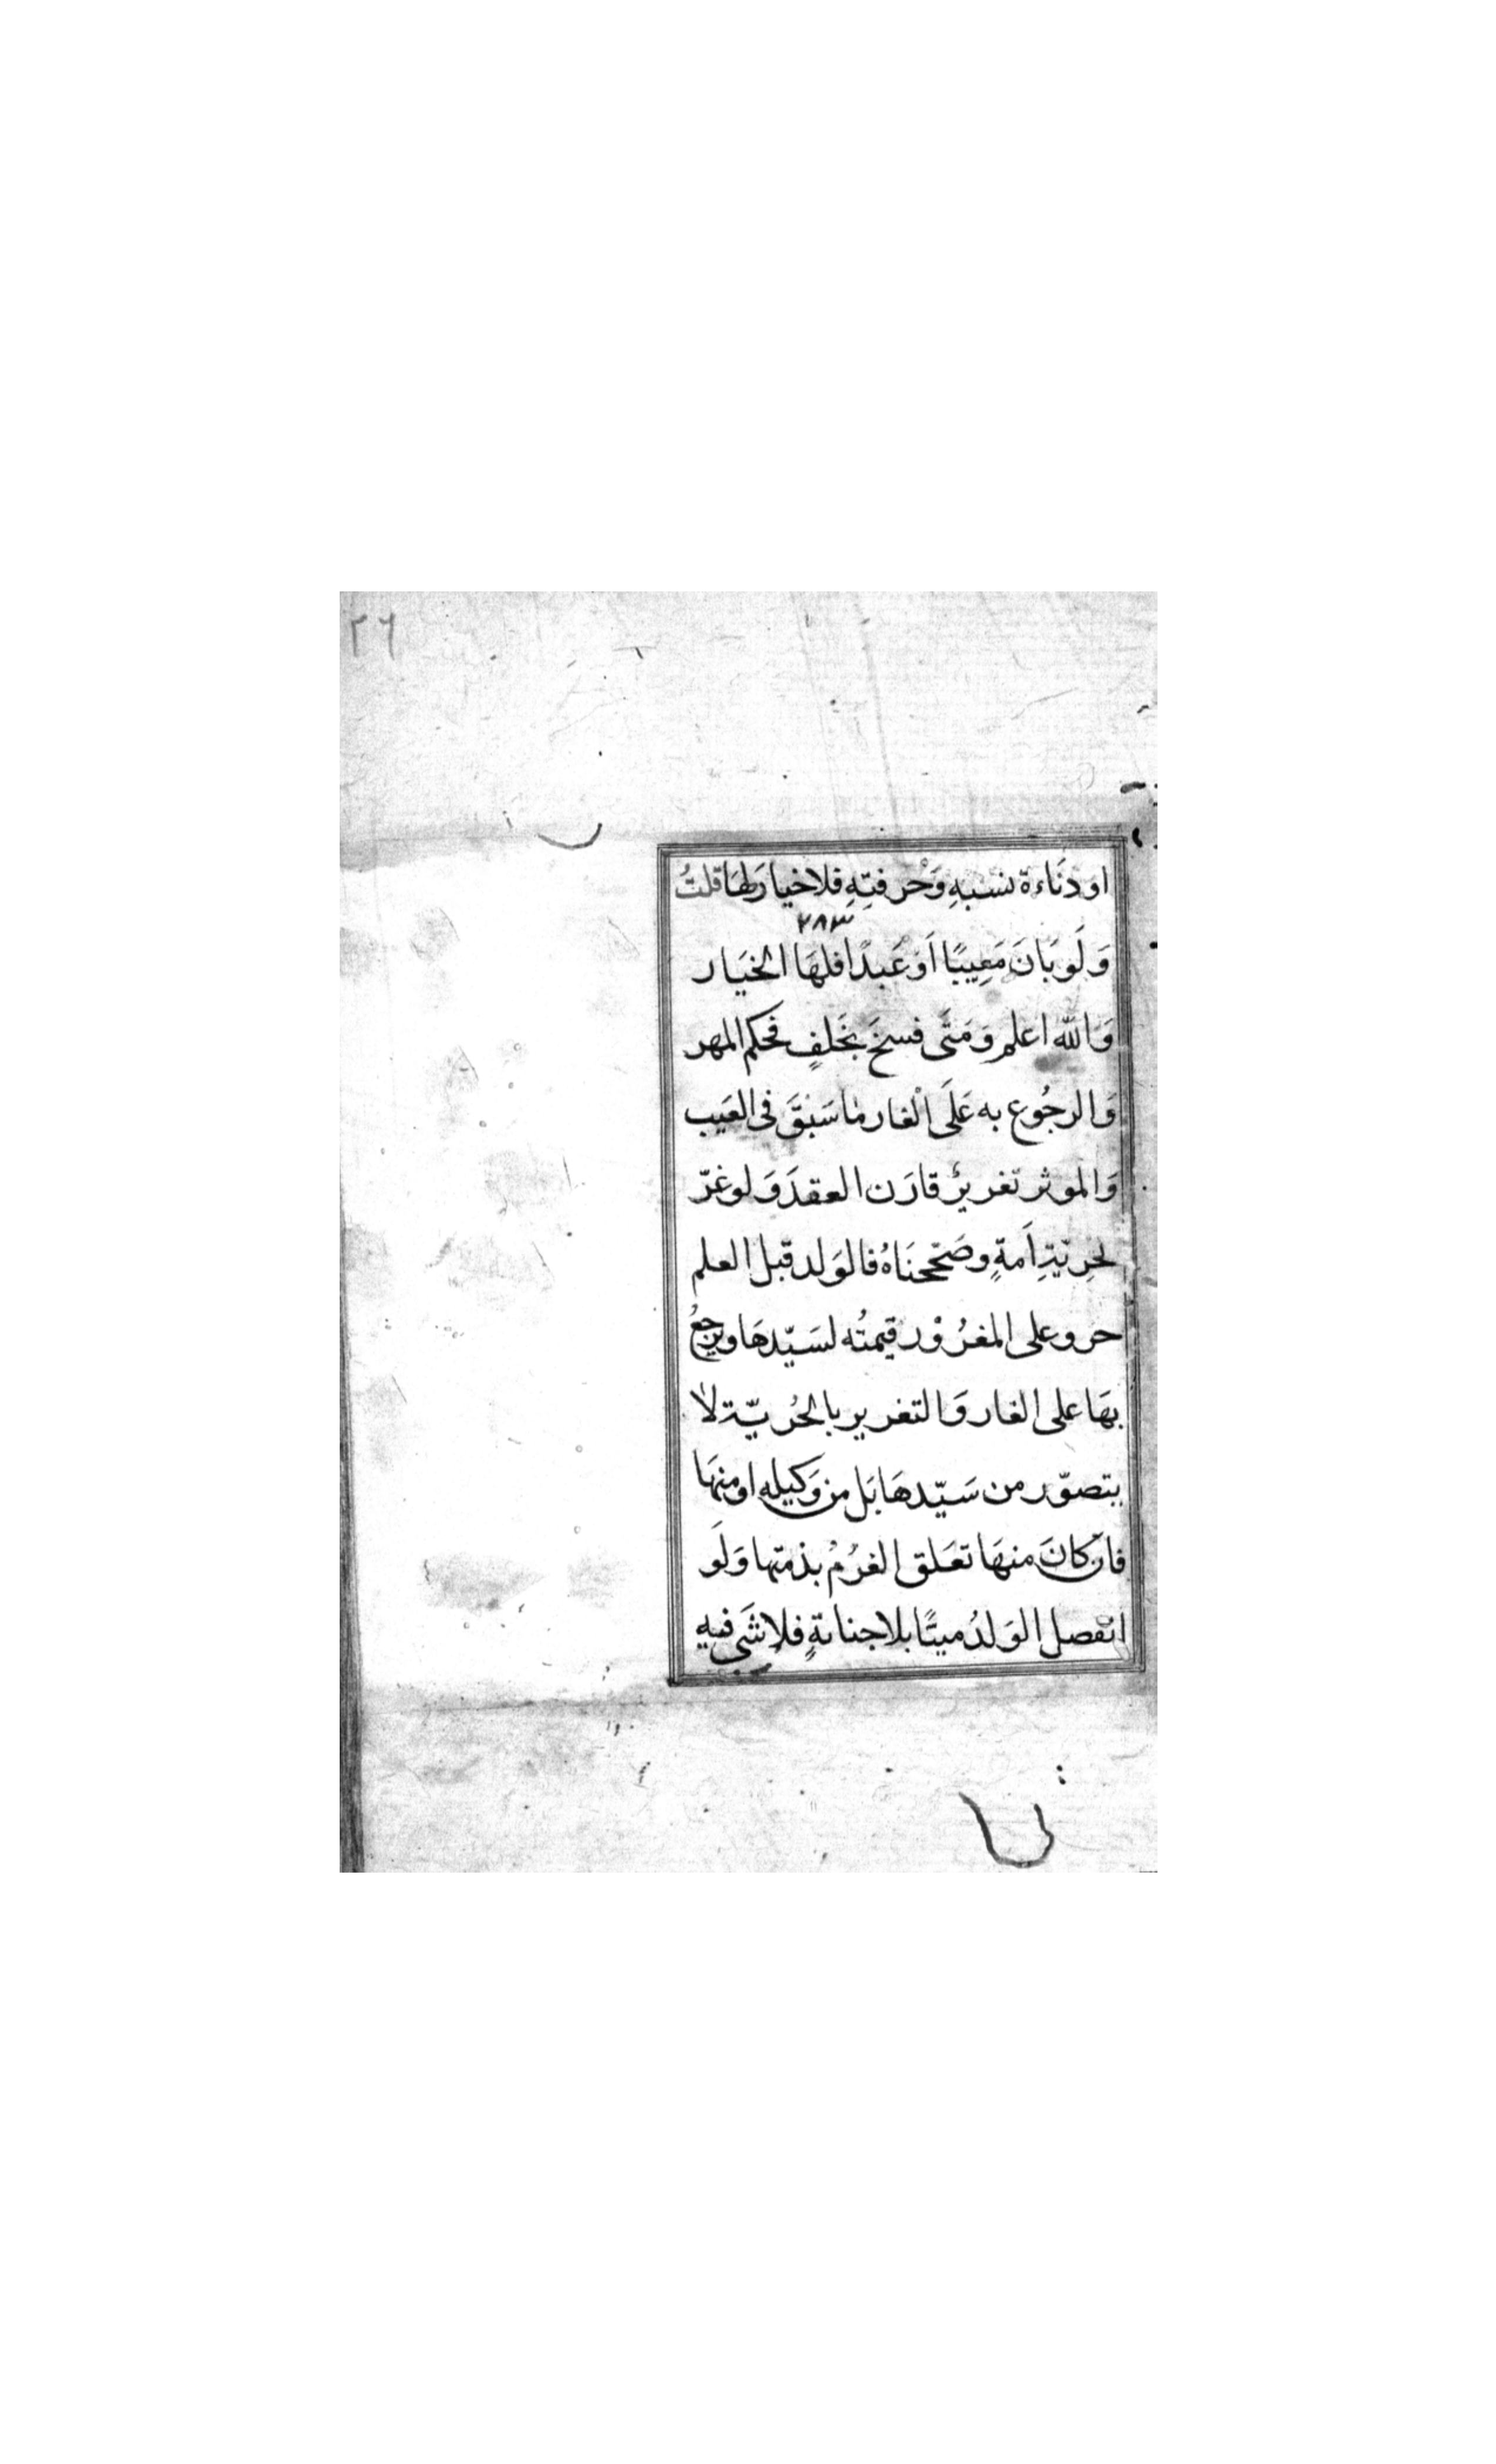 ٢٦
او دَنَاءة نسبهِ وَحْرفتِهِ فلاخيارَلهَا قلتُ
٢٨٣
وَلَوبَانَ مَعِيبًا اَوْعَبدًا فلهَا الخيَار
وَاللّه اعلم وَمَتَى فسخَ بخَلفٍ فحكم المهر
وَالرجُوع به عَلَى الْغار مٰا سَبْقَ فى العَيب
وَالموثر تغريرٌ قارَن العقدَ وَلوغرّ
بحرِيّةِ اَمةٍ وصَحّحنَاهُ فالوَلد قبل العلم
حر وعلى المغرُوْر قيمتُه لسَيّدهَا ويرجعُ
بهَا على الغار وَالتغرير بالحُريّة لاٰ
يتصوّر من سَيّدهَا بَل من وَكيله او منهَا
فان كانَ منهَا تعَلق الغرُمْ بذمتها وَلَو
انفصل الوَلدُ ميتًا بلاجنايةٍ فلا شَى فيه